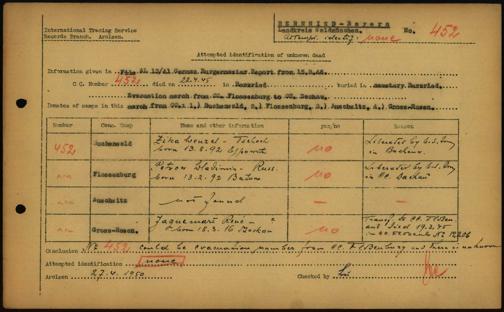 BERNRIED-Bayern
International Tracing Service
Records Branch. Arolsen.
Landkreis Waldmünchen.
No. 452
Attempt. identif.: none
Attempted identification of unknown dead
Information given in File SL 12/41 German Burgermeister Report from 15.8.46.
C C Number 452 died on 22.4.45 in Bernried buried in cemetery Bernried.
Evacuation march from CC. Flossenburg to CC. Dachau.
Owners of numbers in this march from CCs 1.) Buchenwald, 2.) Flossenburg, 3.) Auschwitz, 4.) Gross-Rosen.
Number Conc. Camp Name and other information yes/no Reason
452 Buchenwald Zika Wenzel - Tschech no Liberated by U.S. Army
born 13.8.92 in Buchenw.
Flossenburg Petrow Wladimir - Russ. no Liberated by U.S. Army
born 13.2.92 in CC. Dachau
Auschwitz not found — —
Gross-Rosen. Jaquemart René - no Transf. to CC. Flben
born 18.3.16 and died 19.2.45
Conclusion No 452 could be evacuation number from CC. Flbenburg
Attempted identification none
Arolsen 27.4.1950 Checked by